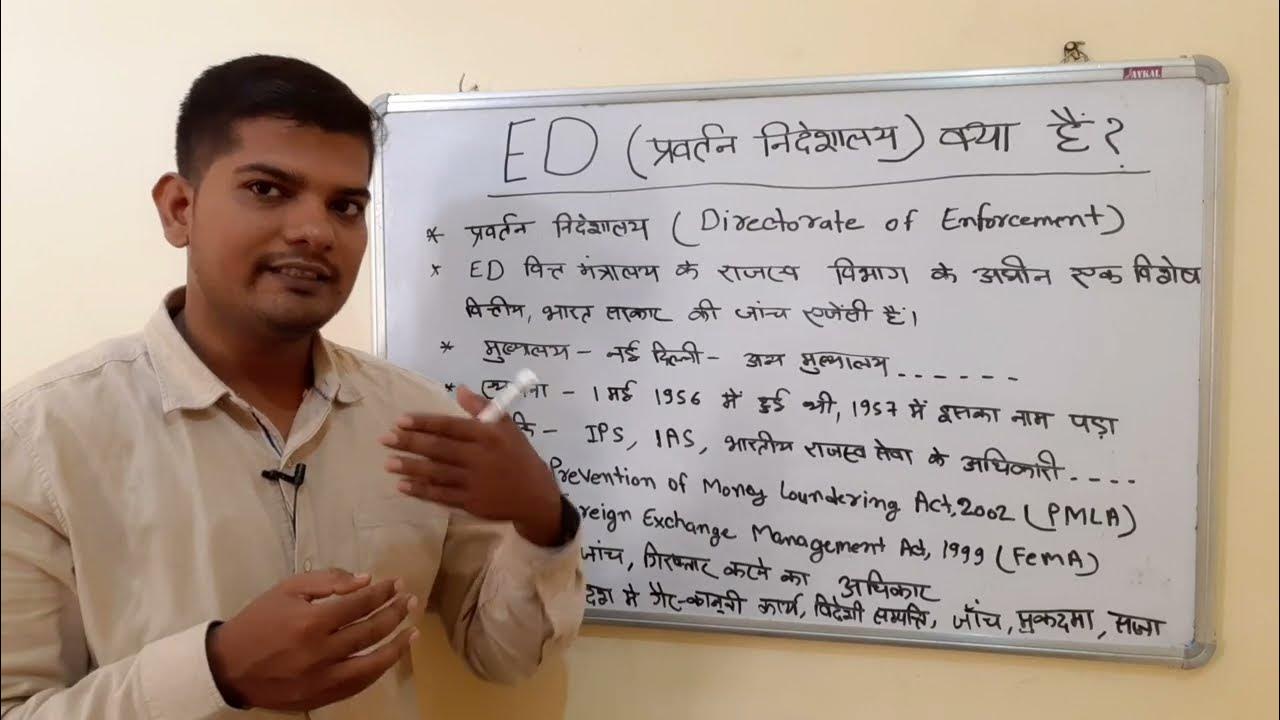 JAYKAL
ED (प्रवर्तन निदेशालय) क्या हैं?
* प्रवर्तन निदेशालय (Directorate of Enforcement)
* ED वित्त मंत्रालय के राजस्व विभाग के अधीन एक विशेष
वित्तीय, भारत सरकार की जांच एजेंसी हैं।
* मुख्यालय - नई दिल्ली - अन्य मुख्यालय ......
* - 1 मई 1956 में हुई थी, 1957 में इसका नाम पड़ा
- IPS, IAS, भारतीय राजस्व सेवा के अधिकारी ....
Prevention of Money Loundering Act, 2002 (PMLA)
reign Exchange Management Act, 1999 (FemA)
जांच, गिरफ्तार करने का अधिकार
में गैर-कानूनी कार्य, विदेशी सम्पत्ति, जाँच, मुकदमा, सजा